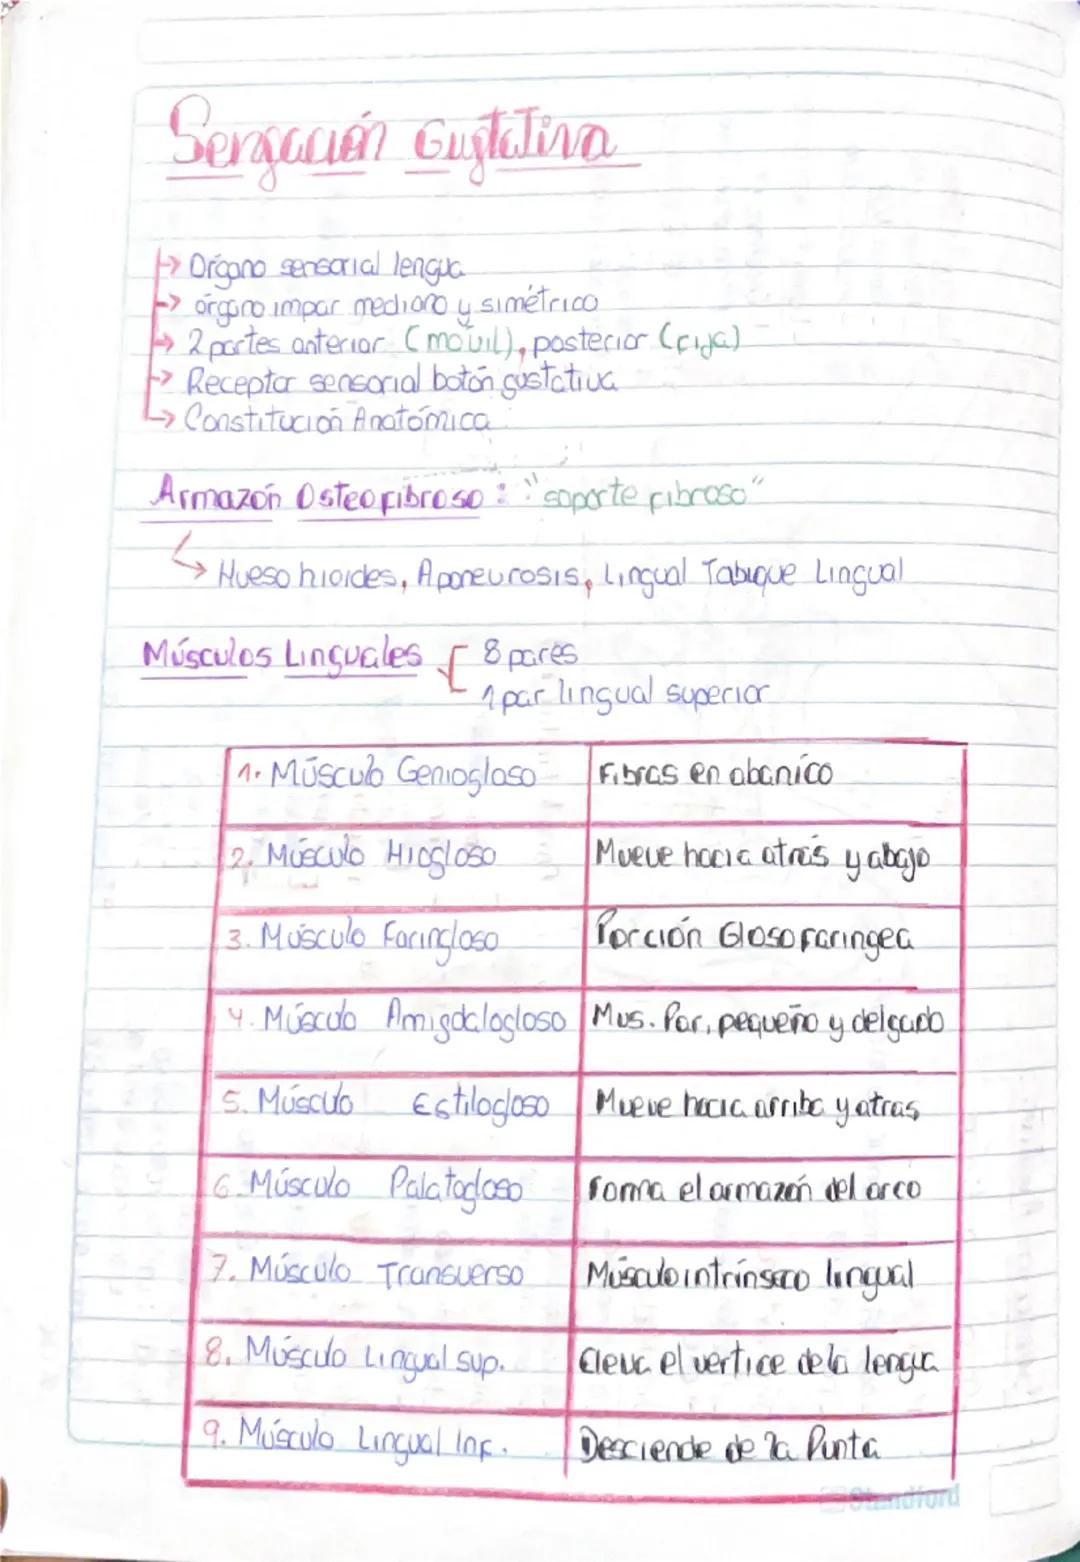 Sensación Gustativa
→ Órgano sensorial lengua
→ órgano impar mediano y simétrico
→ 2 partes anterior (móvil), posterior (fija)
→ Receptor sensorial botón gustativa
→ Constitución Anatómica
Armazón Osteofibroso: "soporte fibroso"
→ Hueso hioides, Aponeurosis, Lingual Tabique Lingual
Músculos Linguales { 8 pares
1 par lingual superior
1. Músculo Geniogloso Fibras en abanico
2. Músculo Hiogloso Mueve hacia atrás y abajo
3. Músculo Faringloso Porción Glosofaringea
4. Músculo Amigdalogloso Mus. Par, pequeño y delgado
5. Músculo Estilogloso Mueve hacia arriba y atras
6. Músculo Palatogloso Forma el armazón del arco
7. Músculo Transverso Músculo intrínseco lingual
8. Músculo Lingual sup. Eleva el vertice de la lengua
9. Músculo Lingual Inf. Desciende de la Punta
Standford